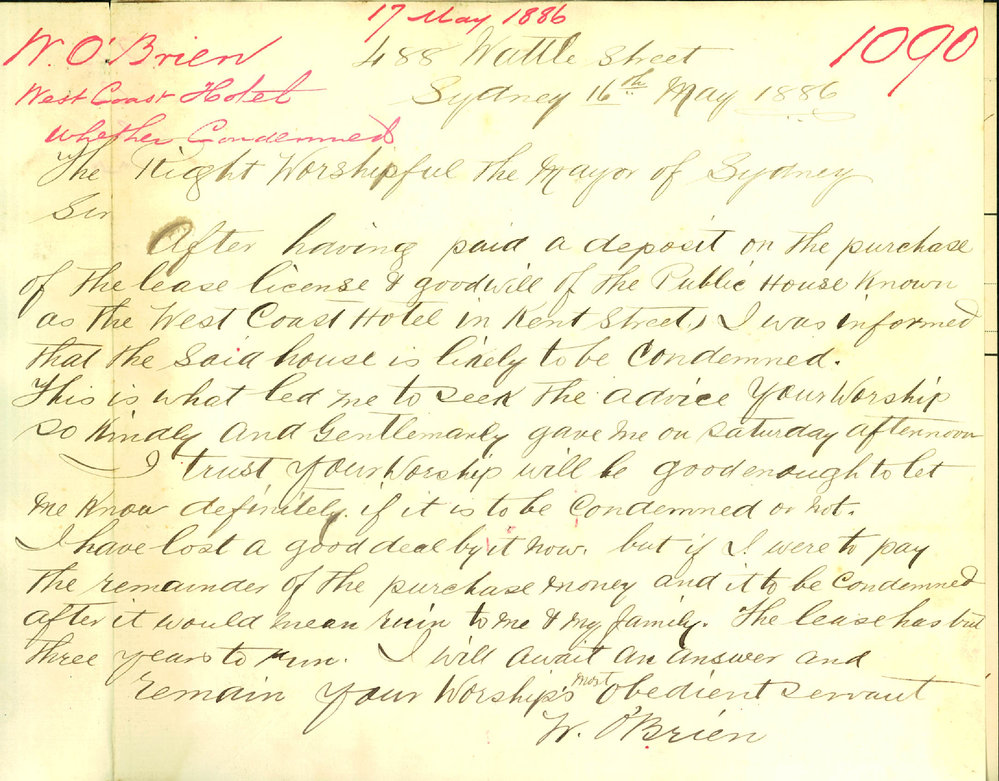 17 May 1886
W. O'Brien
488 Wattle Street
1090
West Coast Hotel
Sydney 16th May 1886
whether Condemned
The Right Worshipful the Mayor of Sydney
Sir
After having paid a deposit on the purchase
of the lease license & goodwill of the Public House Known
as the West Coast Hotel in Kent Street, I was informed
that the said house is likely to be Condemned.
This is what led me to seek the advice Your Worship
so Kindly and Gentlemanly gave me on Saturday afternoon
I trust Your Worship will be good enough to let
me Know definitely if it is to be Condemned or not.
I have lost a good deal by it now. but if I were to pay
the remainder of the purchase money and it to be Condemned
after it would mean ruin to me & my family. The lease has but
three years to run. I will await an answer and
remain Your Worship's most obedient servant
W. O'Brien